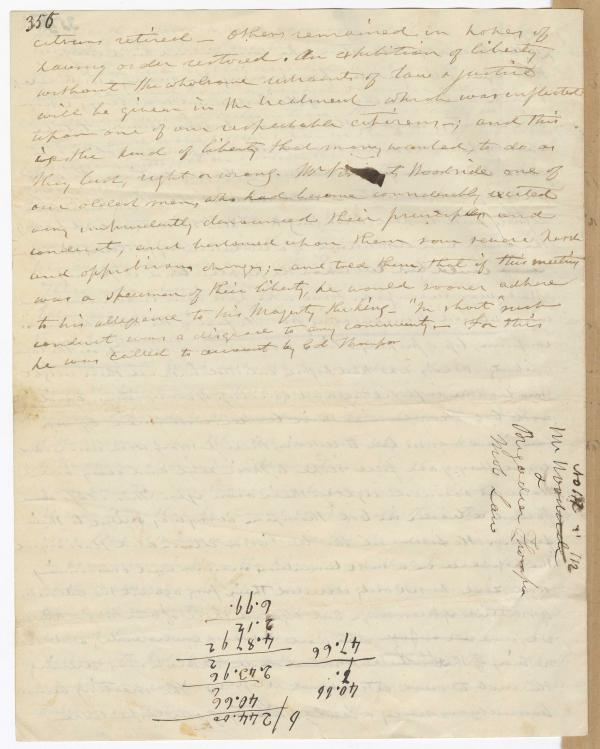 356
citizens retired – others remained in hopes of
having order restored. An exhibition of liberty
without the wholesome restraints of law & justice
will be given in the treatment which was inflicted
upon one of our respectable citizens –; and this
is the kind of liberty that many wanted, to do as
they lust, right or wrong. Mr Woodside one of
our oldest men, who had become considerably excited
very denounced their principles and
conduct, and bestowed upon them some severe harsh
and opprobrious charges; – and told them, that if this meeting
was a specimen of their liberty, he would sooner adhere
to his allegiance to his Majesty the King – "In short" such
conduct was a disgrace to any community – For this
he was called to account by
No
Mr Woodside
&
Brigadier
Mob Law
112
6/244.00
40.66
2
2.43.96
2
4.87.92
2.12
6.99.
40.66
7.
47.66